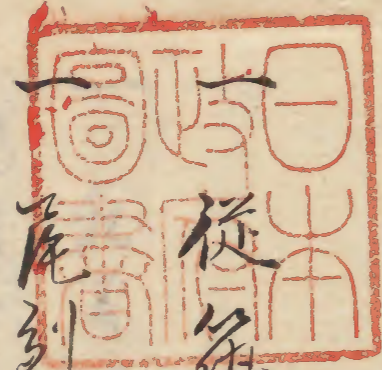 日本
政府
圖書
一 從
一 尾